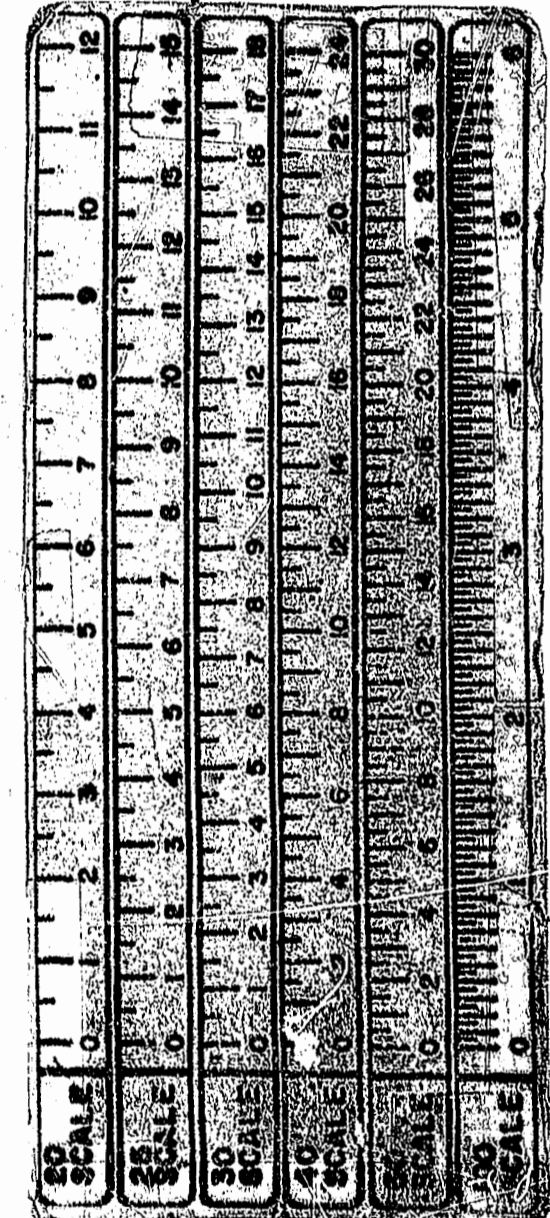 20
SCALE 0 1 2 3 4 5 6 7 8 9 10 11 12
25
SCALE 0 1 2 3 4 5 6 7 8 9 10 11 12 13 14 15
30
SCALE 0 1 2 3 4 5 6 7 8 9 10 11 12 13 14 15 16 17 18
40
SCALE 0 2 4 6 8 10 12 14 16 18 20 22 24
SCALE 0 2 4 6 8 10 12 14 16 18 20 22 24 26 28 30
100
SCALE 0 1 2 3 4 5 6